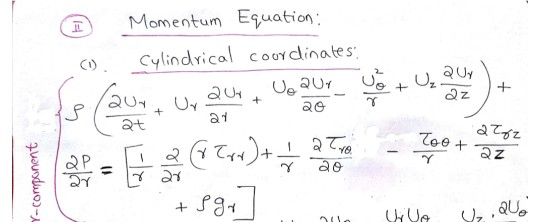 II Momentum Equation:
(1). Cylindrical coordinates:
ρ (∂Ur/∂t + Ur ∂Ur/∂r + Uθ ∂Ur/∂θ - Uθ²/r + Uz ∂Ur/∂z) +
r-component
∂P/∂r = [1/r ∂/∂r (r τrr) + 1/r ∂τrθ/∂θ - τθθ/r + ∂τrz/∂z
+ ρgr]
UrUθ Uz . ∂Uθ